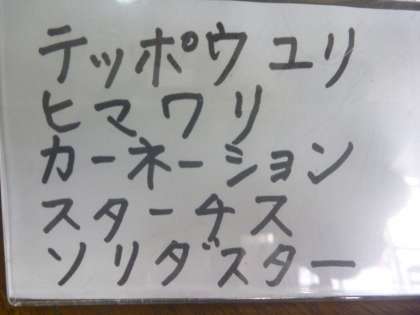 テッポウユリ
ヒマワリ
カーネーション
スターチス
ソリダスター